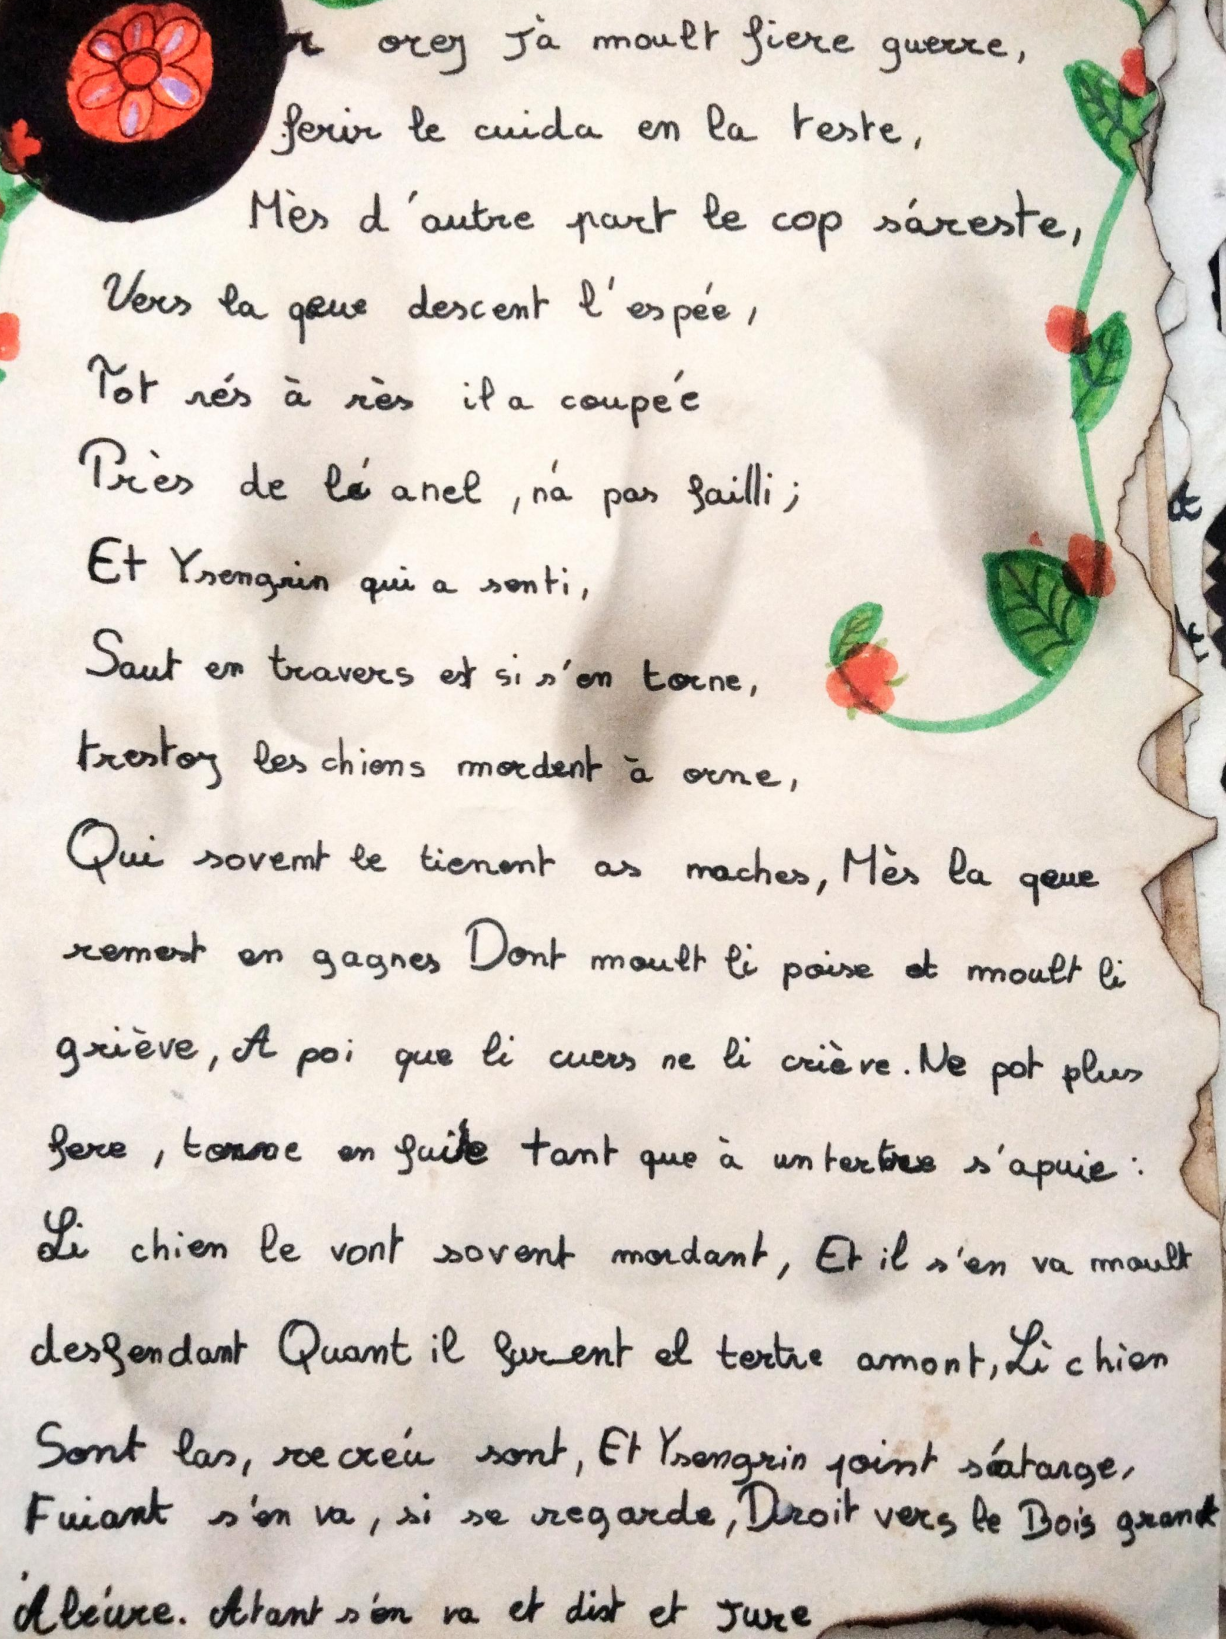 r orez Jà moult fiere guerre,
ferir le cuida en la teste,
Mès d'autre part le cop sáreste,
Vers la qeue descent l'espée,
Tot rés à rès il a coupée
Près de lé anel, n'a pas failli;
Et Ysengrin qui a senti,
Saut en travers et si s'en torne,
trestoz les chiens mordent à orne,
Qui sovent le tienent as naches, Mès la qeue
remest en gagnes Dont moult li poise et moult li
griève, A poi que li cuers ne li criève. Ne pot plus
fere, torne en fuite tant que à un tertre s'apuie:
Li chien le vont sovent mordant, Et il s'en va moult
desfendant Quant il furent el tertre amont, Li chien
Sont las, recréu sont, Et Ysengrin point s'atarge,
Fuiant s'en va, si se regarde, Droit vers le Bois grant
Aléure. Atant s'en va et dist et Jure